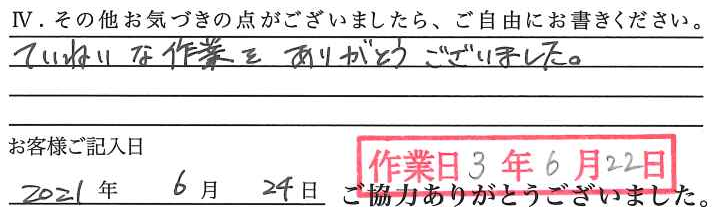 Ⅳ．その他お気づきの点がございましたら、ご自由にお書きください。
ていねいな作業を ありがとうございました。
お客様ご記入日
作業日 3 年 6 月 22 日
2021 年 6 月 24 日 ご協力ありがとうございました。